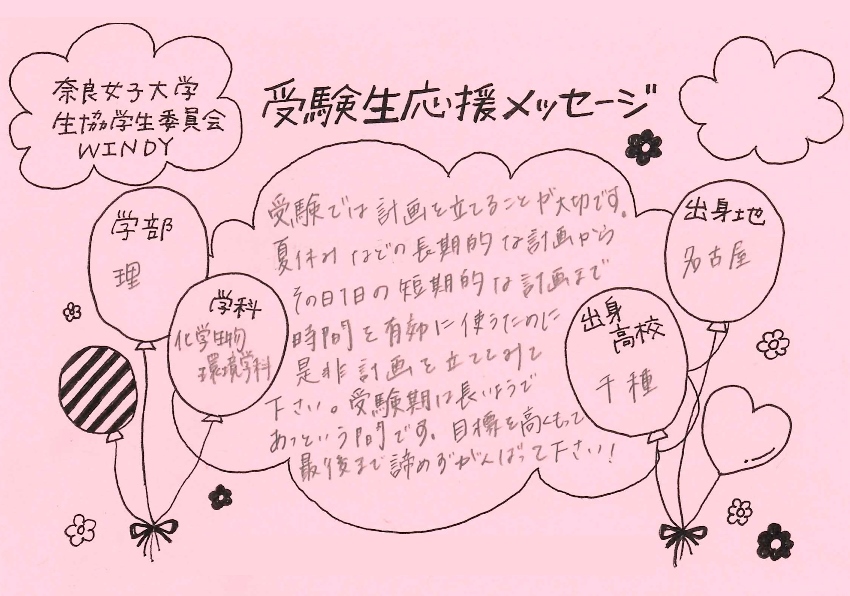 奈良女子大学
生協学生委員会
WINDY
受験生応援メッセージ
学部
理
学科
化学生物
環境学科
受験では計画を立てることが大切です。
夏休みなどの長期的な計画から
その日1日の短期的な計画まで
時間を有効に使うために
是非計画を立ててみて
下さい。受験期は長いようで
あっという間です。目標を高くもって
最後まで諦めずがんばって下さい！
出身地
名古屋
出身
高校
千種